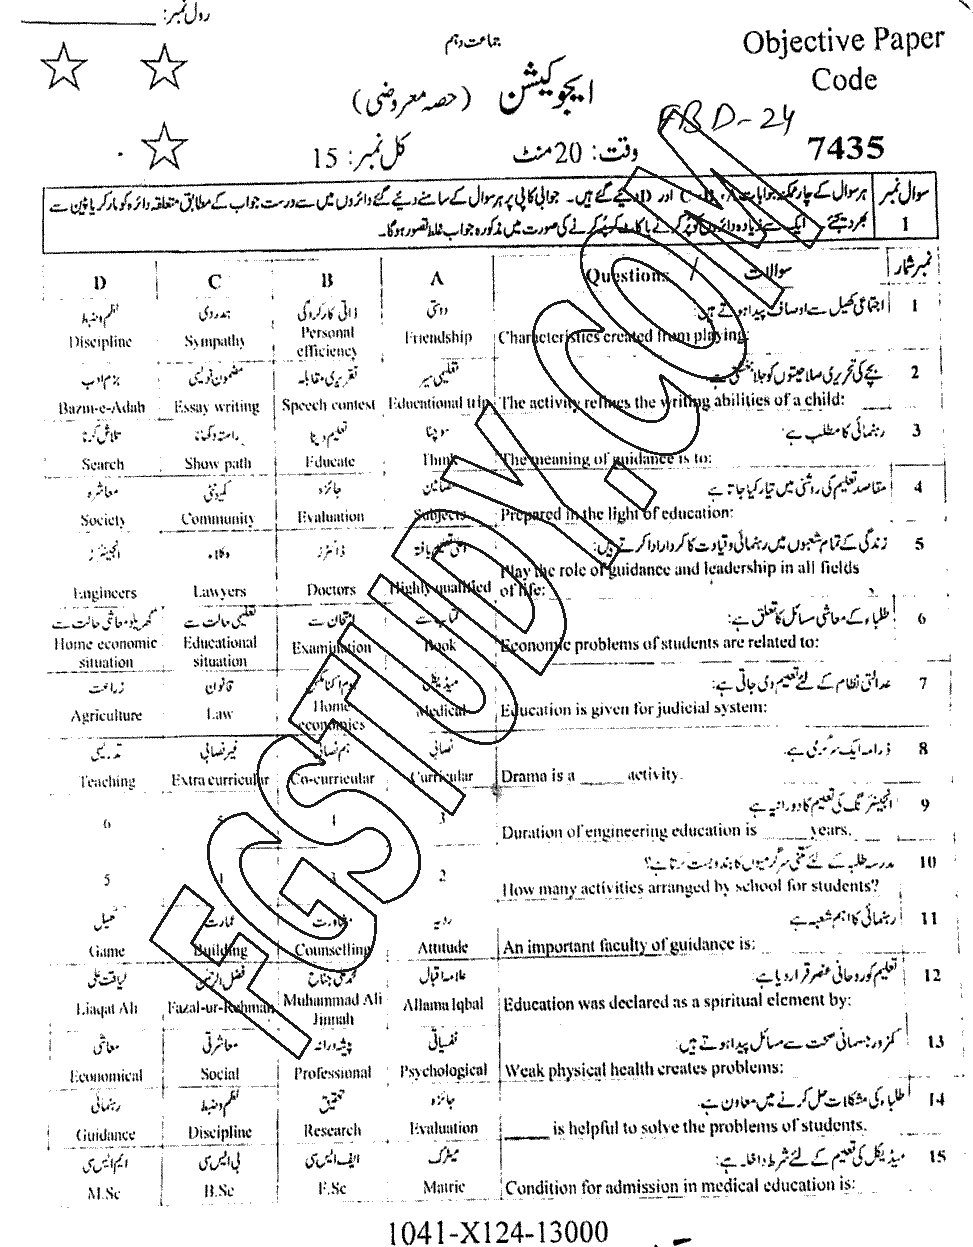 رول نمبر:
جماعت دہم
Objective Paper
Code
ایجوکیشن (حصہ معروضی)
FBD-24
7435
وقت: 20 منٹ
کل نمبر: 15
سوال نمبر 1
ہر سوال کے چار ممکنہ جوابات A، B، C اور D دیئے گئے ہیں۔ جوابی کاپی پر ہر سوال کے سامنے دیئے گئے دائروں میں سے درست جواب کے مطابق متعلقہ دائرہ کو مارکر یا پین سے
بھر دیجئے ایک سے زیادہ دائروں کو پُر کرنے یا کاٹ کر پُر کرنے کی صورت میں مذکورہ جواب غلط تصور ہوگا۔
D C B A Questions / سوالات نمبر شمار
نظم و ضبط ہمدردی ذاتی کارکردگی دوستی اجتماعی کھیل سے اوصاف پیدا ہوتے ہیں: 1
Discipline Sympathy Personal efficiency Friendship Characteristics created from playing:
بزم ادب مضمون نویسی تقریری مقابلہ تعلیمی سیر بچے کی تحریری صلاحیتوں کو جلا بخشتی ہے 2
Bazm-e-Adab Essay writing Speech contest Educational trip The activity refines the writing abilities of a child:
تلاش کرنا راستہ دکھانا تعلیم دینا سوچنا رہنمائی کا مطلب ہے: 3
Search Show path Educate Think The meaning of guidance is to:
معاشرہ کمیونٹی جائزہ مضامین مقاصد تعلیم کی روشنی میں تیار کیا جاتا ہے 4
Society Community Evaluation Subjects Prepared in the light of education:
انجینئرز وکلاء ڈاکٹرز اعلیٰ تعلیم یافتہ زندگی کے تمام شعبوں میں رہنمائی و قیادت کا کردار ادا کرتے ہیں: 5
Engineers Lawyers Doctors Highly qualified Play the role of guidance and leadership in all fields of life:
گھریلو معاشی حالت سے تعلیمی حالت سے امتحان سے کتاب سے طلباء کے معاشی مسائل کا تعلق ہے: 6
Home economic situation Educational situation Examination Book Economic problems of students are related to:
زراعت قانون ہوم اکنامکس میڈیکل عدالتی نظام کے لئے تعلیم دی جاتی ہے: 7
Agriculture Law Home economics Medical Education is given for judicial system:
تدریسی غیر نصابی ہم نصابی نصابی ڈرامہ ایک سرگرمی ہے۔ 8
Teaching Extra curricular Co-curricular Curricular Drama is a _____ activity.
انجینئرنگ کی تعلیم کا دورانیہ ہے 9
6 5 4 3 Duration of engineering education is _____ years.
مدرسہ طلبہ کے لئے کتنی سرگرمیوں کا بندوبست کرتا ہے؟ 10
5 4 3 2 How many activities arranged by school for students?
کھیل عمارت مشاورت رویہ رہنمائی کا اہم شعبہ ہے 11
Game Building Counselling Attitude An important faculty of guidance is:
لیاقت علی فضل الرحمٰن محمد علی جناح علامہ اقبال تعلیم کو روحانی عنصر قرار دیا ہے: 12
Liaqat Ali Fazal-ur-Rehman Muhammad Ali Jinnah Allama Iqbal Education was declared as a spiritual element by:
معاشی معاشرتی پیشہ ورانہ نفسیاتی کمزور جسمانی صحت سے مسائل پیدا ہوتے ہیں: 13
Economical Social Professional Psychological Weak physical health creates problems:
رہنمائی نظم و ضبط تحقیق جائزہ طلباء کی مشکلات حل کرنے میں معاون ہے۔ 14
Guidance Discipline Research Evaluation _____ is helpful to solve the problems of students.
ایم ایس سی بی ایس سی ایف ایس سی میٹرک میڈیکل کی تعلیم کے لئے شرط داخلہ ہے: 15
M.Sc B.Sc F.Sc Matric Condition for admission in medical education is:
1041-X124-13000
FGSTUDY.COM